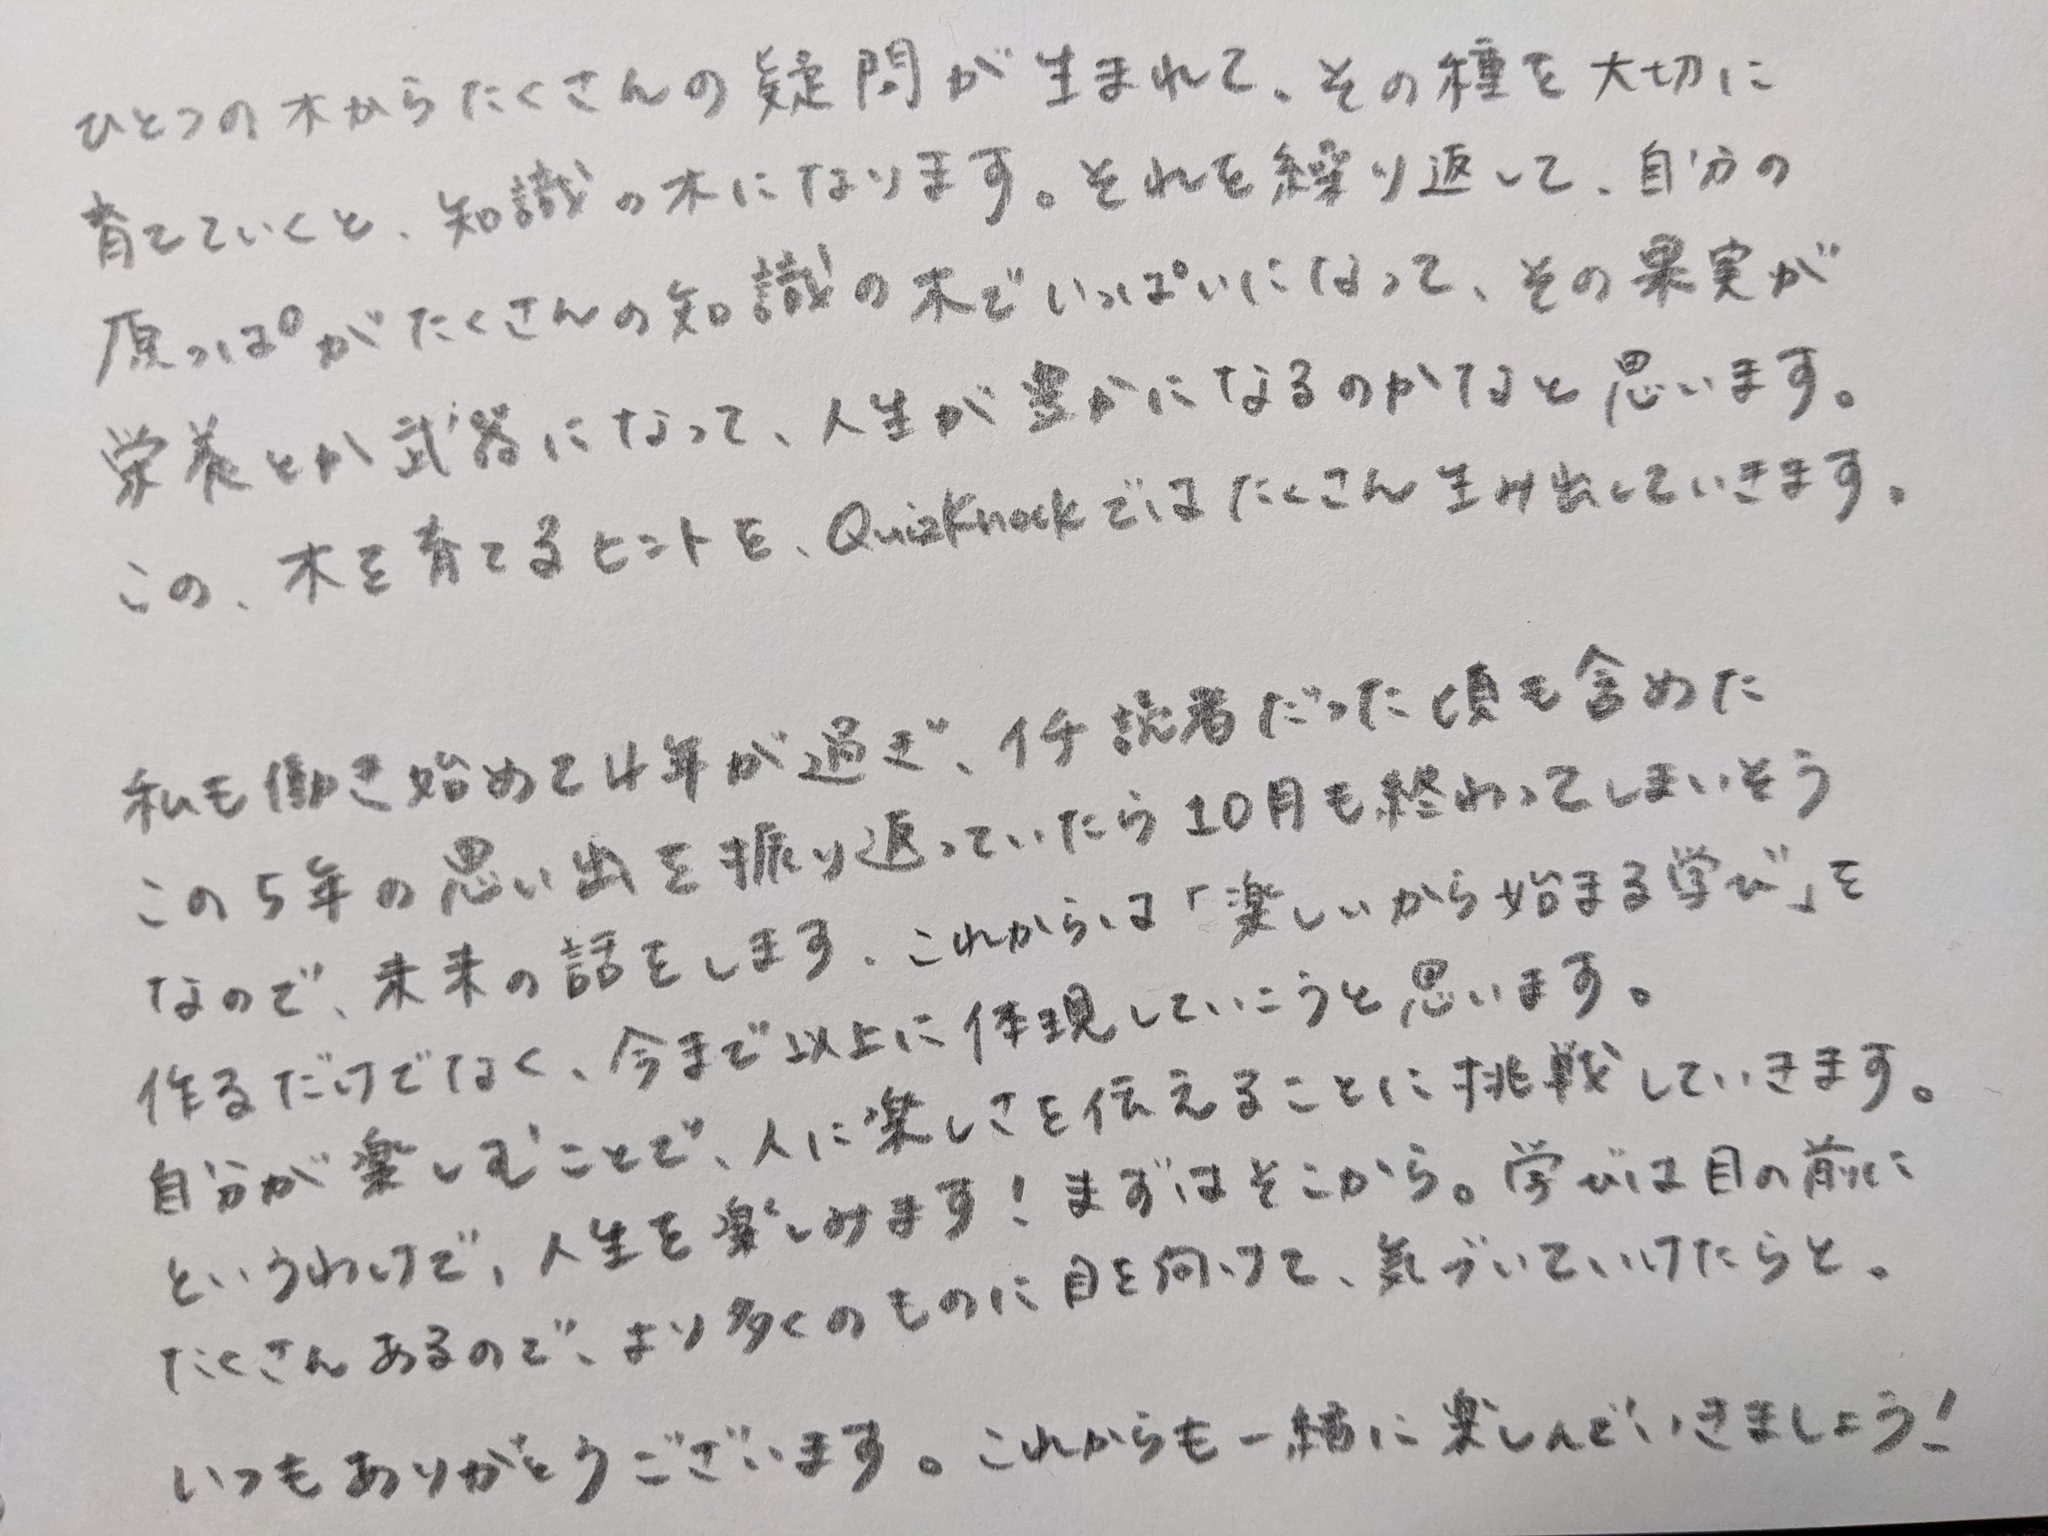 ひとつの木からたくさんの疑問が生まれて、その種を大切に
育てていくと、知識の木になります。それを繰り返して、自分の
原っぱがたくさんの知識の木でいっぱいになって、その果実が
栄養とか武器になって、人生が豊かになるのかなと思います。
この、木を育てるヒントを、QuizKnockではたくさん生み出していきます。
私も働き始めて4年が過ぎ、イチ読者だった頃も含めた
この5年の思い出を振り返っていたら10月も終わってしまいそう
なので、未来の話をします。これからは「楽しいから始まる学び」を
作るだけでなく、今まで以上に体現していこうと思います。
自分が楽しむことで、人に楽しさを伝えることに挑戦していきます。
というわけで、人生を楽しみます!まずはそこから。学びは目の前に
たくさんあるので、より多くのものに目を向けて、気づいていけたらと。
いつもありがとうございます。これからも一緒に楽しんでいきましょう!